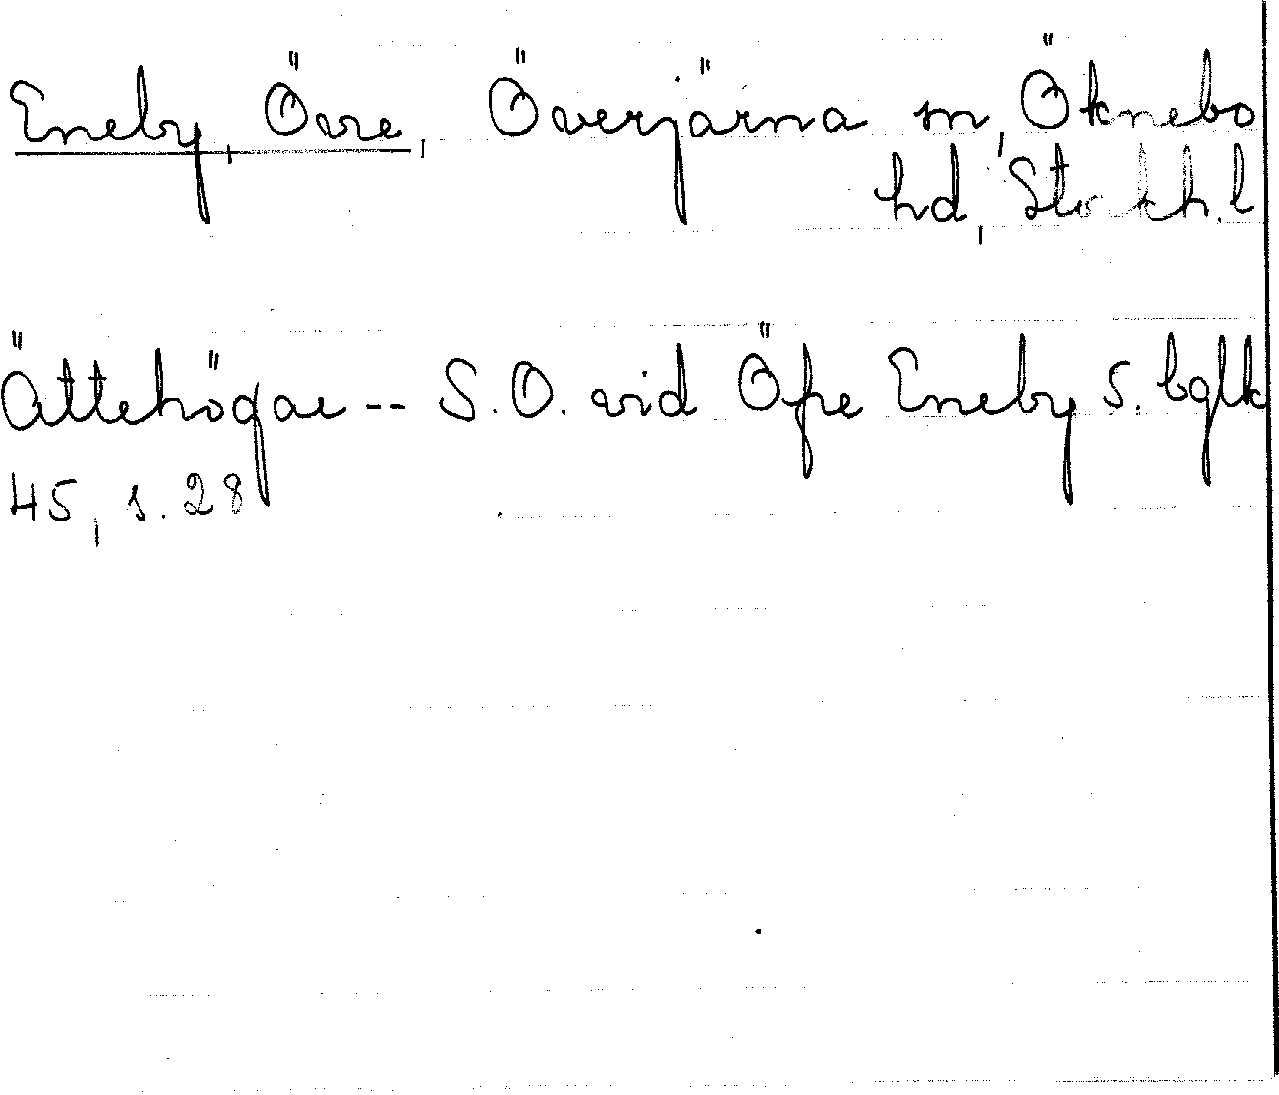 Eneby, Övre, Överjärna sn, Öknebo
hd, Stockh.l
Ättehögar -- S.O. vid Öfre Eneby S. bglk
45, s. 28